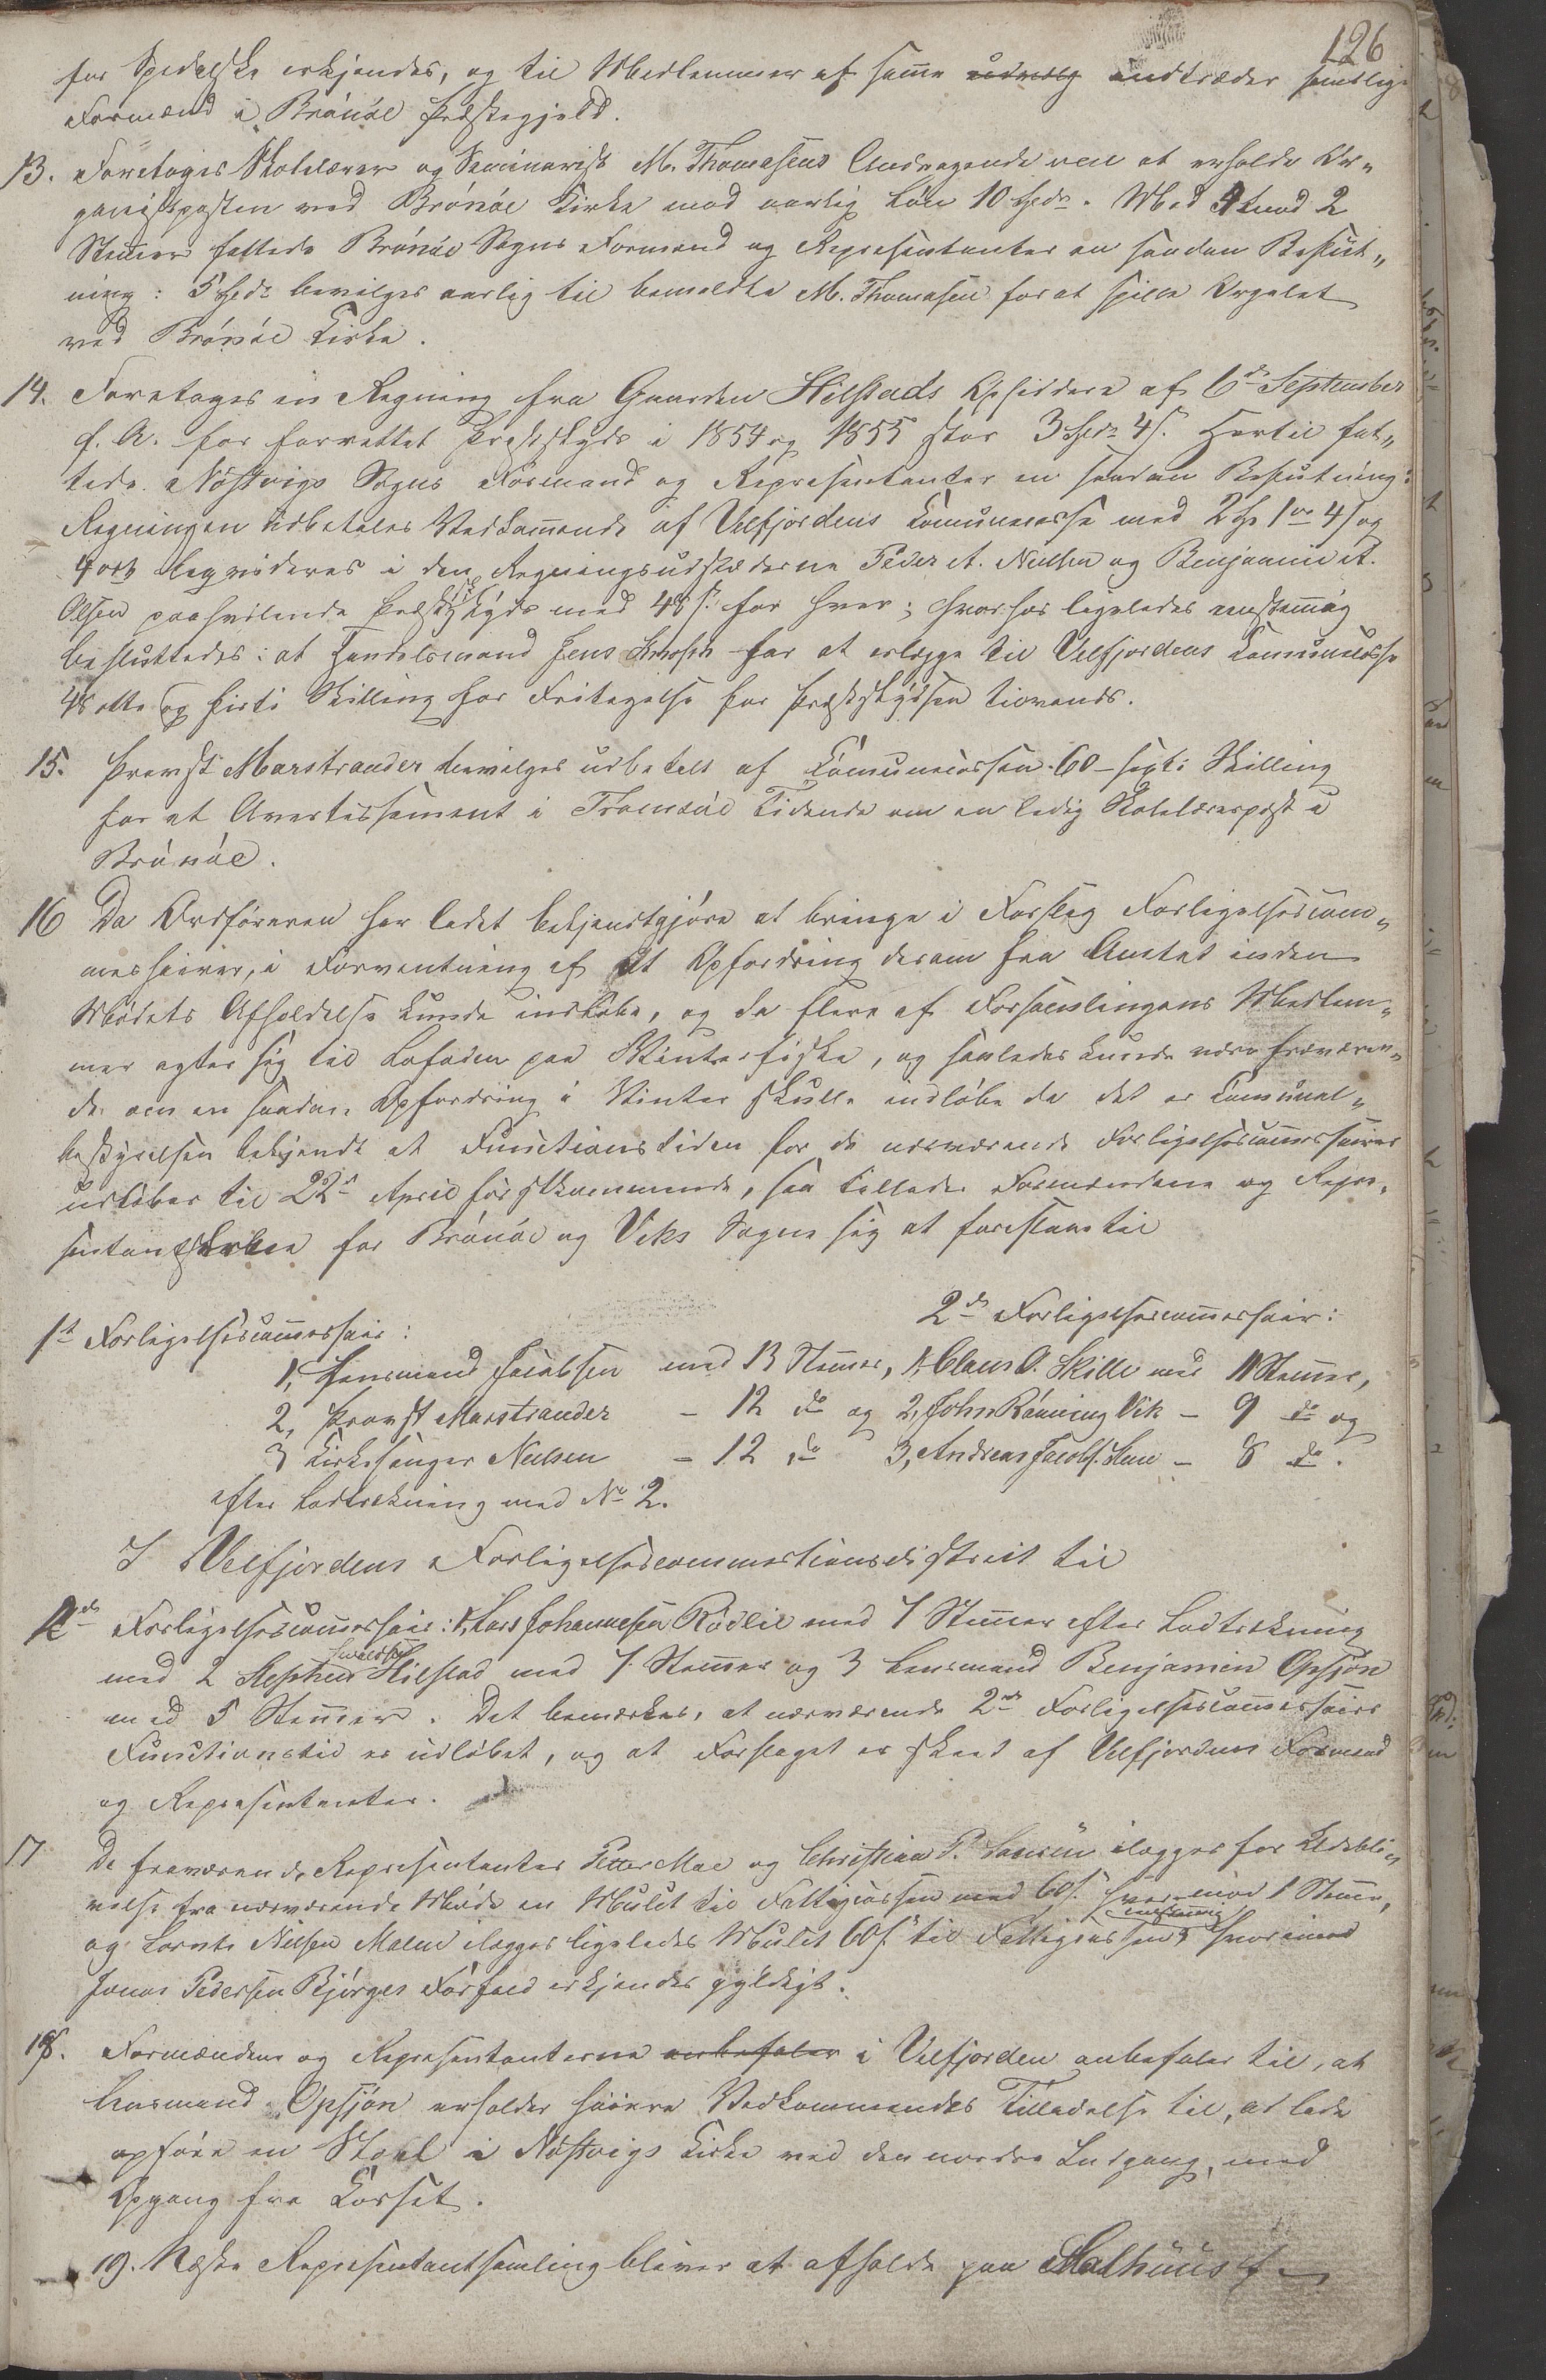 126
for Spedalske erkjendes, og til Medlemmer af samme udvalg indtræder samtlige
Formænd i Brönöe Præstegjeld.
13. Foretoges Skolelærer og Seminarist M. Thomesens Andragende om at erholde Or„
ganistposten ved Brönöe Kirke mod aarlig Løn 10 Spd. Med 9 mod 2
Stemmer fattede Brönöe Sogns Formænd og Repræsentanter en saadan Beslut„
ning: 5 Spd bevilges aarlig til bemeldte M. Thomesen for at spille Orgelet
ved Brönöe Kirke.
14. Foretoges en Regning fra Gaarden Hilstads Opsiddere af 6te September
f. A. for forrettet Præsteskyds i 1854 og 1855 stor 3 Spd 4 s. Hertil fat„
tede Nöstvigs Sogns Formænd og Repræsentanter en saadan Beslutning:
Regningen udbetales Vedkommende af Velfjordens Communecasse med 2 Sp 1 ort 4 s og
4 ort liqvideres i den Regningsudstæderne Peder A. Nielsen og Benjamin A.
Olsen paahvilende Præsteskyds med 48 s. for hver; hvorhos ligeledes eenstemmig
besluttedes: at Handelsmand Jens har at erlægge til Velfjordens Communecasse
48 otte og firti Skilling for Fritagelse for Præsteskydsen tilvands.
15. Provst Marstrander bevilges udbetalt af Communecassen 60 – sexti Skilling
for et Avertissement i Tromsöe Tidende om en ledig Skolelærerpost i
Brönöe.
16 Da Ordføreren har ladet bekjendtgjøre at bringe i Forslag Forligelsescom„
missairer, i Forventning af at Opfordring derom fra Amtet inden
Mødets Afholdelse kunde indløbe, og da flere af Forsamlingens Medlem„
mer agter sig til Lofoden paa Vinterfiske, og saaledes kunde være fraværen„
de om en saadan Opfordring i Vinter skulle indløbe da det er Communal„
bestyrelsen bekjendt at Functionstiden for de nuværende Forligelsescommissairer
udløber til 22de April førstkommende, saa tillader Formændene og Repræ„
sentantskabet for Brönöe og Viks Sogne sig at foreslaae til
1st Forligelsescommissair: 2den Forligelsescommissair:
1, Lensmand Jacobsen med 13 Stemmer, 1, Claus O. Skille med 11 Stemmer,
2, Provst Marstrander – 12 do og 2, John Rönning Vik – 9 do og
3 Kirkesanger Nielsen – 12 do 3, Andreas Jacobs. – 8 do.
efter Lodtrekning med No 2.
I Velfjordens Forligelsescommissionsdistrict til
2den Forligelsescommissair: 1, Lars Johannesen Rödlie med 7 Stemmer efter Lodtrekning
med 2 Stephen Hilstad med 7 Stemmer og 3 Lensmand Benjamin Opsjøn
med 5 Stemmer. Det bemærkes, at nærværende 2den Forligelsescommissairs
Functionstid er udløbet, og at Forslaget er skeet af Velfjordens Formænd
og Repræsentanter.
17 De fraværende Repræsentanter Petter Moe og Christian P. ilægges for Udebli„
velse fra nærværende Møde en Mulct til Fattigcassen med 60 s. hver mod 1 Stemme,
og Lornts Nielsen Malm ilægges ligeledes Mulct 60 s. til Fattigcassen eenstemmig hvorimod
Jonas Pedersen Bjørges Forfald erkjendes gyldigt.
18. Formændene og Repræsentanterne anbefaler i Velfjorden anbefaler til, at
Lensmand Opsjøn erholder høiere Vedkommendes Tilladelse til, at lade
opføre en Stoel i Nöstvigs Kirke ved den nordre Indgang, med
Opgang fra Korset.
19. Næste Repræsentantsamling bliver at afholde paa